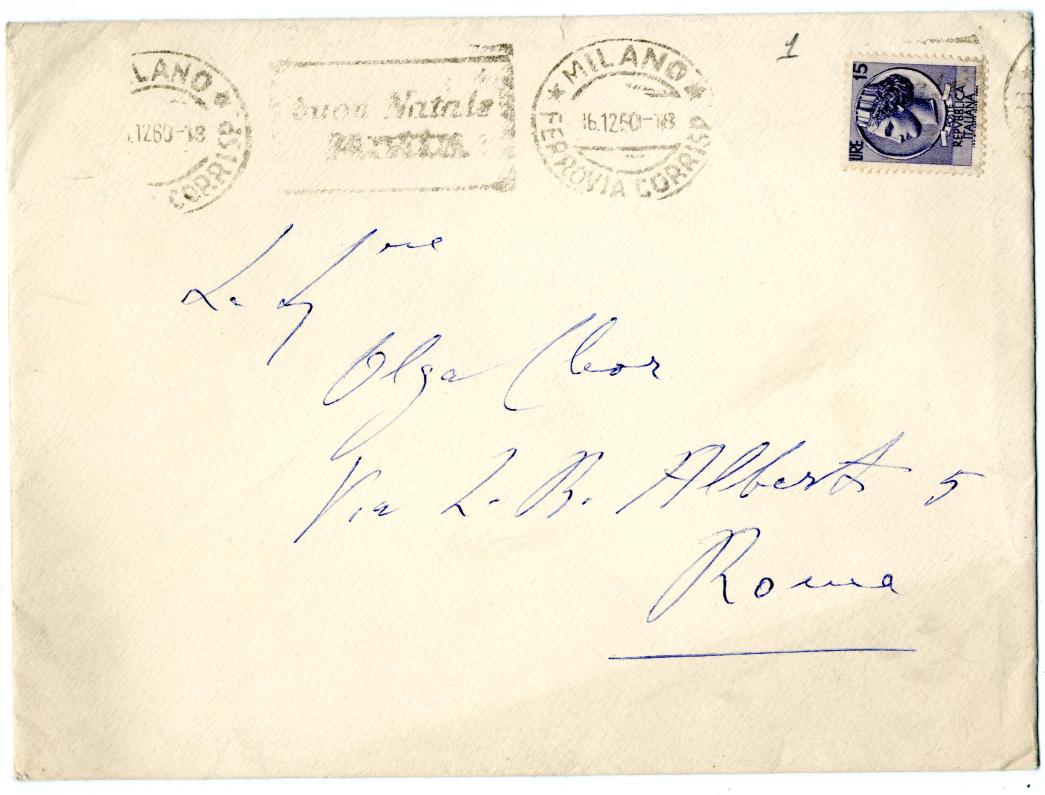 1
LANO *
.1260-18
CORRISP
buon Natale
* MILANO *
16.1260-18
FERROVIA CORRISP
LIRE 15
POSTE
REPVBBLICA
ITALIANA
Olga
Via L. B. Alberti 5
Roma